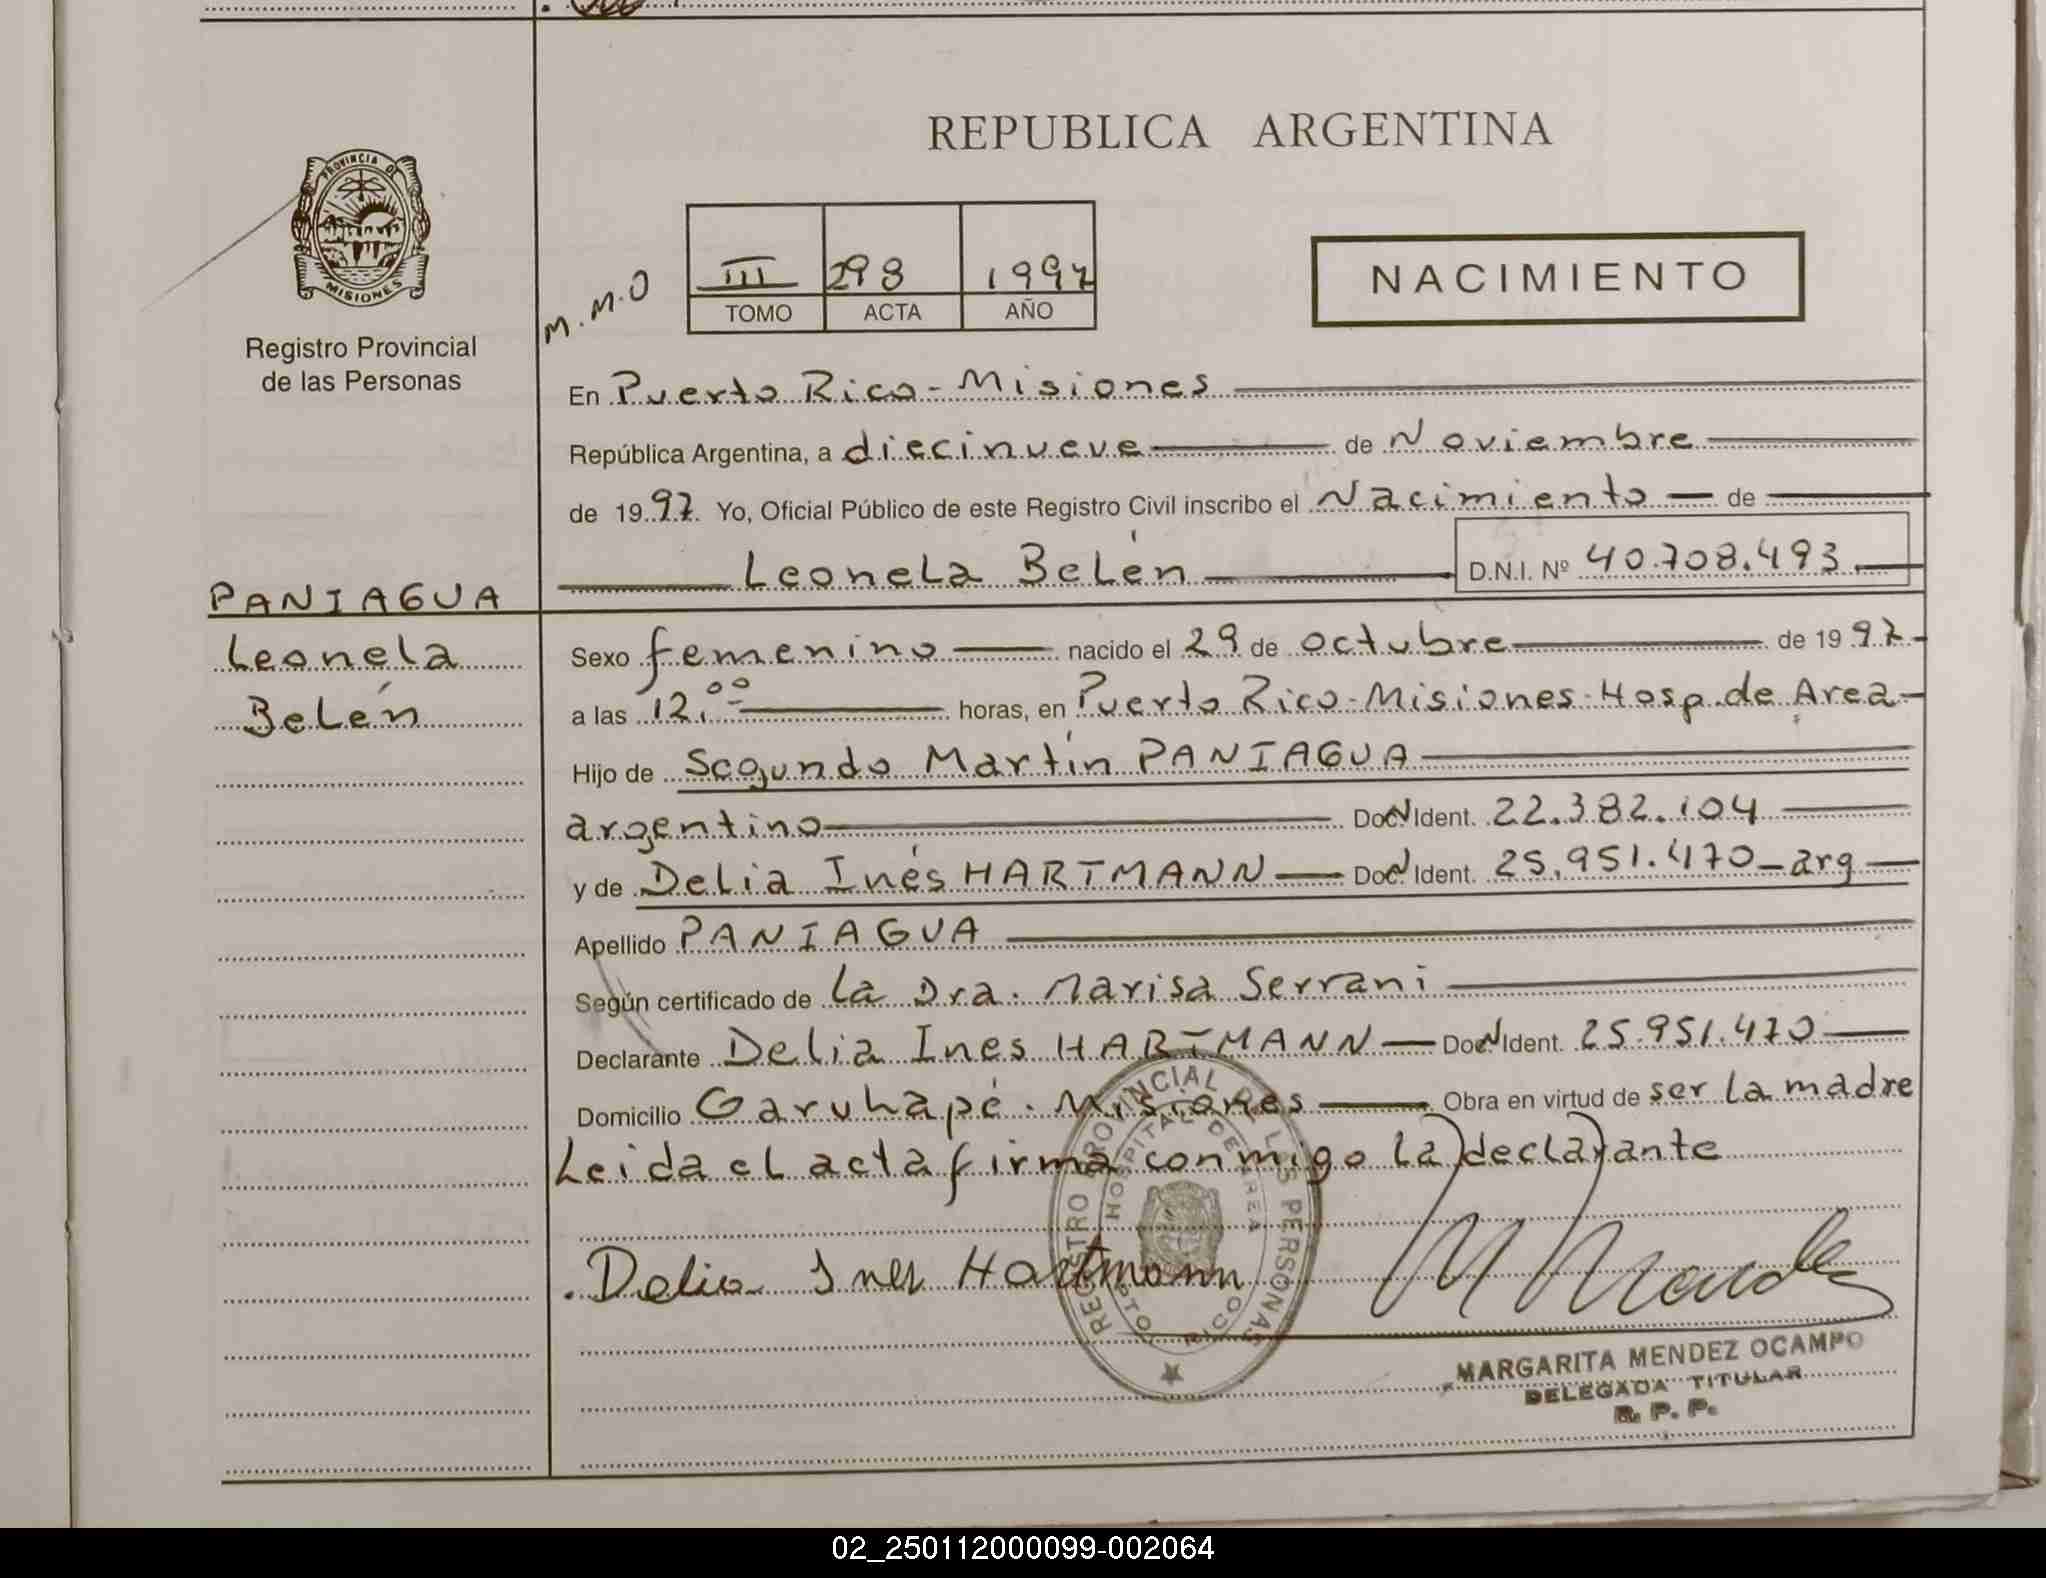 REPUBLICA ARGENTINA
PROVINCIA DE
MISIONES
Registro Provincial
de las Personas
M.M.O
III 298 1997
TOMO ACTA AÑO
NACIMIENTO
En Puerto Rico - Misiones
República Argentina, a diecinueve de Noviembre
de 1997. Yo, Oficial Público de este Registro Civil inscribo el Nacimiento de
Leonela Belén D.N.I. Nº 40.708.493.
PANIAGUA
Leonela
Belén
Sexo femenino nacido el 29 de octubre de 1997
a las 12.00 horas, en Puerto Rico-Misiones-Hosp.de Area
Hijo de Segundo Martín PANIAGUA
argentino Doc. Ident. 22.382.104
y de Delia Inés HARTMANN Doc. Ident. 25.951.470 - arg
Apellido PANIAGUA
Según certificado de la Dra. Marisa Serrani
Declarante Delia Ines HARTMANN Doc. Ident. 25.951.470
Domicilio Garuhapé. Misiones Obra en virtud de ser la madre
Leida el acta firma conmigo la declarante
Delia Ines Hartmann
REGISTRO PROVINCIAL DE LAS PERSONAS
HOSPITAL DE AREA
PTO RICO
M Mendez
MARGARITA MENDEZ OCAMPO
DELEGADA TITULAR
R. P. P.
02_250112000099-002064